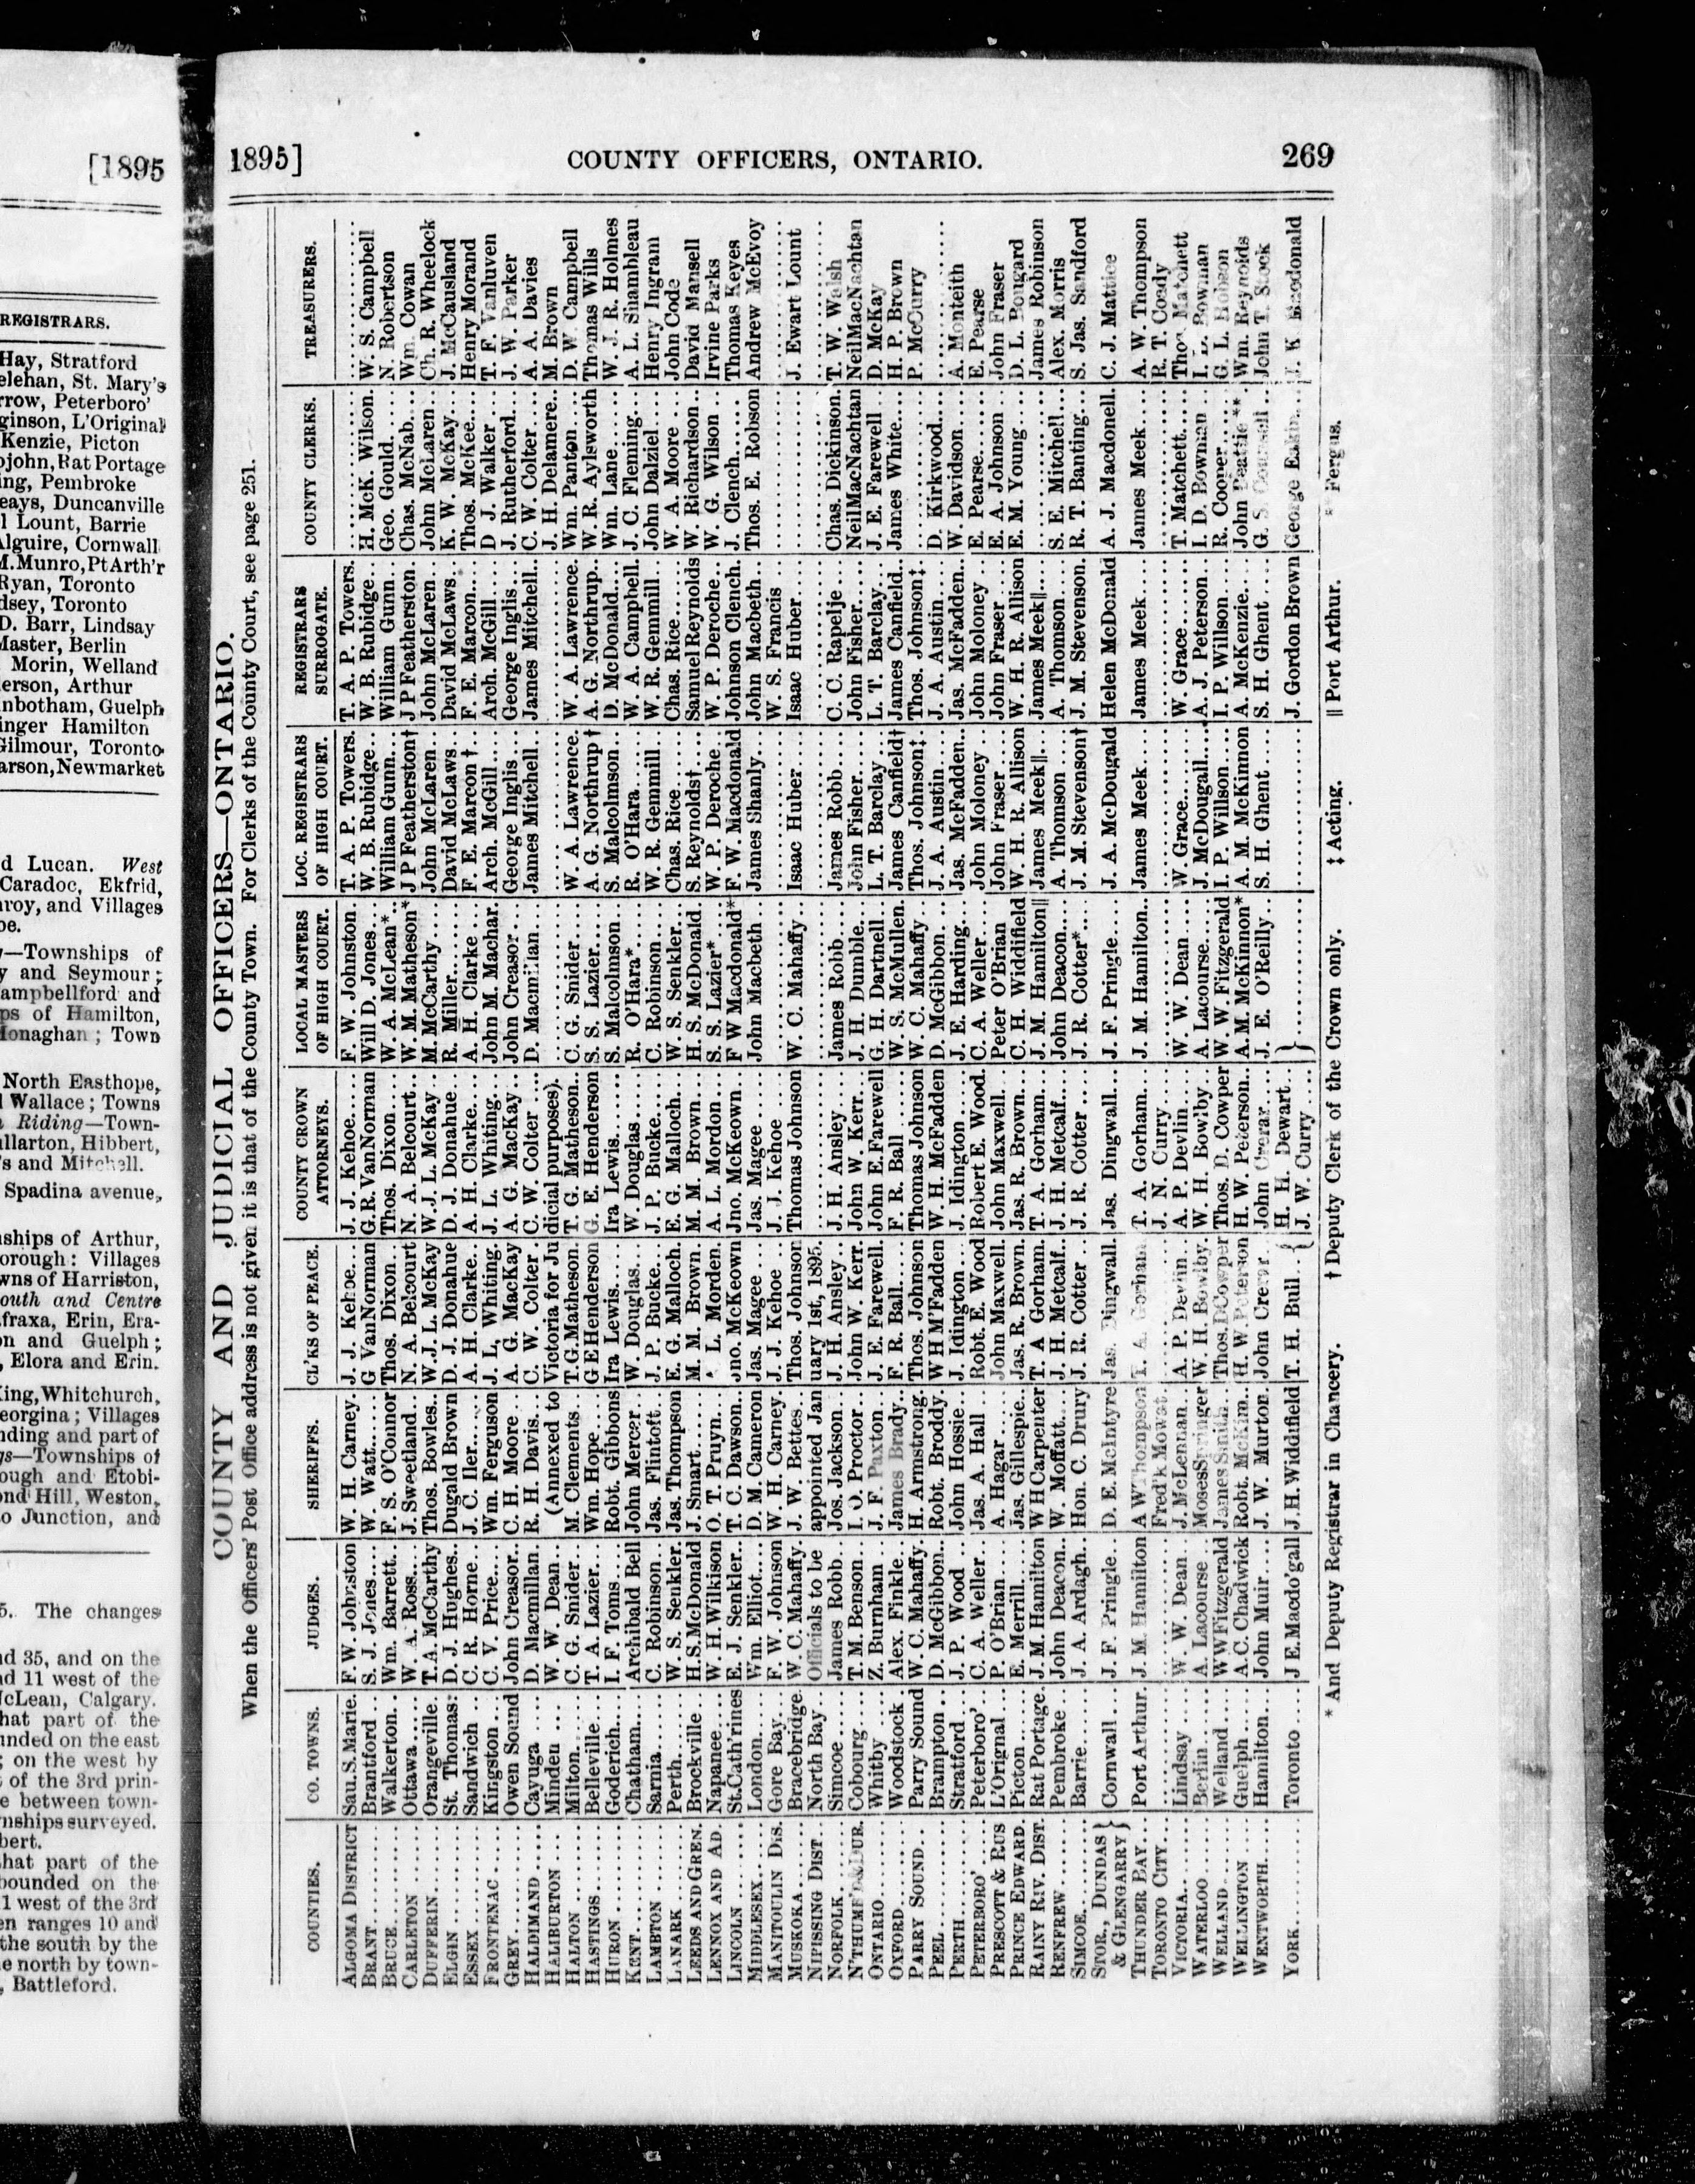 [1895
REGISTRARS.
Hay, Stratford
elehan, St. Mary's
rrow, Peterboro'
ginson, L'Original
Kenzie, Picton
pjohn, Rat Portage
ing, Pembroke
eays, Duncanville
l Lount, Barrie
Alguire, Cornwall
M. Munro, Pt Arth'r
Ryan, Toronto
dsey, Toronto
D. Barr, Lindsay
Master, Berlin
Morin, Welland
erson, Arthur
nbotham, Guelph
inger Hamilton
Gilmour, Toronto
arson, Newmarket
d Lucan. West
Caradoc, Ekfrid,
roy, and Villages
oe.
—Townships of
y and Seymour;
ampbellford and
ps of Hamilton,
Monaghan; Town
North Easthope,
Wallace; Towns
Riding—Town-
llarton, Hibbert,
's and Mitchell.
Spadina avenue,
ships of Arthur,
orough: Villages
wns of Harriston,
outh and Centre
fraxa, Erin, Era-
on and Guelph;
, Elora and Erin.
ing, Whitchurch,
eorgina; Villages
nding and part of
gs—Townships of
ough and Etobi-
ond Hill, Weston,
o Junction, and
5. The changes
nd 35, and on the
nd 11 west of the
McLean, Calgary.
hat part of the
unded on the east
; on the west by
of the 3rd prin-
e between town-
nships surveyed.
bert.
hat part of the
bounded on the
1 west of the 3rd
en ranges 10 and
the south by the
e north by town-
, Battleford.
1895] COUNTY OFFICERS, ONTARIO. 269
COUNTY AND JUDICIAL OFFICERS—ONTARIO.
When the Officers' Post Office address is not given it is that of the County Town. For Clerks of the County Court, see page 251.
COUNTIES. CO. TOWNS. JUDGES. SHERIFFS. CL'KS OF PEACE. COUNTY CROWN ATTORNEYS. LOCAL MASTERS OF HIGH COURT. LOC. REGISTRARS OF HIGH COURT. REGISTRARS SURROGATE. COUNTY CLERKS. TREASURERS.
ALGOMA DISTRICT Sau. S. Marie. F. W. Johnston W. H. Carney. J. J. Kehoe... J. J. Kehoe.... F. W. Johnston. T. A. P. Towers. T. A. P. Towers. ........ ........
BRANT.... Brantford .. S. J. Jones.... W. Watt...... G VanNorman G. R. VanNorman Will D. Jones... W. B. Rubidge.. W. B. Rubidge.. H. McK. Wilson. W. S. Campbell
BRUCE.... Walkerton.. Wm. Barrett.. F. S. O'Connor Thos. Dixon.. Thos. Dixon.... W. A. McLean*.. William Gunn... William Gunn... Geo. Gould..... N. Robertson
CARLETON .... Ottawa..... W. A. Ross.... J. Sweetland.. N. A. Belcourt N. A. Belcourt.. W. M. Matheson* J P Featherston† J P Featherston. Chas. McNab.... Wm. Cowan
DUFFERIN.... Orangeville. T. A. McCarthy Thos. Bowles.. W. J. L. McKay W. J. L. McKay .. M. McCarthy .... John McLaren .. John McLaren .. John McLaren .. Ch. R. Wheelock
ELGIN .... St. Thomas: D. J. Hughes.. Dugald Brown D. J. Donahue D. J. Donahue .. R. Miller...... David McLaws .. David McLaws .. K. W. McKay... J. McCausland
ESSEX .... Sandwich .. C. R. Horne .. J. C. Iler.... A. H. Clarke... A. H. Clarke.... A. H. Clarke ... F. E. Marcon †.. F. E. Marcon.... Thos. McKee.... Henry Morand
FRONTENAC .... Kingston ... C. V. Price.... Wm. Ferguson J. L. Whiting. J. L. Whiting.... John M. Machar. Arch. McGill.... Arch. McGill.... D J. Walker ... T. F. Vanluven
GREY.... Owen Sound John Creasor.. C. H. Moore .. A. G. MacKay A. G. MacKay... John Creasor... George Inglis ... George Inglis ... J. Rutherford... J. W. Parker
HALDIMAND .... Cayuga .... D. Macmillan. R. H. Davis... C. W. Colter . C. W. Colter ... D. Macmillan... James Mitchell .. James Mitchell.. C. W. Colter.... A. A. Davies
HALIBURTON ... Minden .... W. W. Dean .. (Annexed to Victoria for Judicial purposes). ........ ........ J. H. Delamere.. M. Brown
HALTON .... Milton..... C. G. Snider .. M. Clements .. T. G. Matheson. T. G. Matheson.. C. G. Snider.... W. A. Lawrence. W. A. Lawrence. Wm. Panton.... D. W. Campbell
HASTINGS.... Belleville... T. A. Lazier... Wm. Hope.... G E Henderson G. E. Henderson S. S. Lazier.... A. G. Northrup † A. G. Northrup.. W. R. Aylsworth Thomas Wills
HURON .... Goderich.... I. F. Toms... Robt. Gibbons Ira Lewis..... Ira Lewis...... S. Malcolmson .. S. Malcolmson .. D. McDonald... Wm. Lane..... W. J. R. Holmes
KENT.... Chatham.... Archibald Bell John Mercer.. W. Douglas... W. Douglas .... R. O'Hara*.... R. O'Hara..... W. A. Campbell. J. C. Fleming... A. L. Shambleau
LAMBTON .... Sarnia...... C. Robinson... Jas. Flintoft.. J. P. Bucke... J. P. Bucke..... C. Robinson.... W. R. Gemmill .. W. R. Gemmill .. John Dalziel .... Henry Ingram
LANARK .... Perth...... W. S. Senkler. Jas. Thompson E. G. Malloch. E. G. Malloch... W. S. Senkler... Chas. Rice...... Chas. Rice...... W. A. Moore ... John Code
LEEDS AND GREN. Brockville .. H. S. McDonald J. Smart...... M. M. Brown . M. M. Brown... H. S. McDonald. S. Reynolds†.... Samuel Reynolds W. Richardson.. David Mansell
LENNOX AND AD. Napanee.... W. H. Wilkison O. T. Pruyn... L. Morden. A. L. Mordon... S. S. Lazier* ... W. P. Deroche .. W. P. Deroche... W. G. Wilson .. Irvine Parks
LINCOLN .... St. Cath'rines E. J. Senkler.. T. C. Dawson.. Jno. McKeown Jno. McKeown .. F W Macdonald* F. W. Macdonald Johnson Clench. J. Clench...... Thomas Keyes
MIDDLESEX.... London..... Wm. Elliot.... D. M. Cameron Jas. Magee ... Jas. Magee ..... John Macbeth .. James Shanly... John Macbeth .. Thos. E. Robson Andrew McEvoy
MANITOULIN DIS. Gore Bay... F. W. Johnson W. H. Carney. J. J. Kehoe .. J. J. Kehoe .... ........ ........ W. S. Francis ........ ........
MUSKOKA .... Bracebridge. W. C. Mahaffy. J. W. Bettes.. Thos. Johnson Thomas Johnson W. C. Mahaffy .. Isaac Huber ... Isaac Huber ... ........ J. Ewart Lount
NIPISSING DIST.. North Bay Officials to be appointed January 1st, 1895. ........
NORFOLK .... Simcoe..... James Robb... Jos. Jackson.. J. H. Ansley.. J. H. Ansley .... James Robb.... James Robb.... C. C. Rapelje ... Chas. Dickinson. T. W. Walsh
N'THUMB'D & DUR. Cobourg ... T. M. Benson .. I. O. Proctor.. John W. Kerr. John W. Kerr... J. H. Dumble... John Fisher..... John Fisher..... Neil MacNachtan Neil MacNachtan
ONTARIO .... Whitby .... Z. Burnham .. J. F. Paxton .. J. E. Farewell. John E. Farewell G. H. Dartnell.. L. T. Barclay ... L. T. Barclay... J. E. Farewell .. D. McKay
OXFORD.... Woodstock . Alex. Finkle.. James Brady.. F. R. Ball.... F. R. Ball ..... W. S. McMullen. James Canfield† James Canfield.. James White.... H. P. Brown
PARRY SOUND... Parry Sound W. C. Mahaffy. H. Armstrong. Thos. Johnson Thomas Johnson W. C. Mahaffy .. Thos. Johnson‡. Thos. Johnson‡. ........ P. McCurry
PEEL .... Brampton .. D. McGibbon.. Robt. Broddy. W H M'Fadden W. H. McFadden D. McGibbon... J. A. Austin.... J. A. Austin.... D. Kirkwood.... ........
PERTH.... Stratford... J. P. Wood .. John Hossie.. J. Idington... J. Idington..... J. E. Harding... Jas. McFadden.. Jas. McFadden.. W. Davidson.... A. Monteith
PETERBORO' .... Peterboro' .. C. A. Weller.. Jas. A. Hall .. Robt. E. Wood Robert E. Wood. C. A. Weller.... John Moloney .. John Moloney .. E. Pearse...... E. Pearse
PRESCOTT & RUS L'Orignal ... P. O'Brian.... A. Hagar..... John Maxwell. John Maxwell... Peter O'Brian John Fraser.... John Fraser .... E. A. Johnson .. John Fraser
PRINCE EDWARD. Picton..... E. Merrill..... Jas. Gillespie.. Jas. R. Brown. Jas. R. Brown... C. H. Widdifield W. H. R. Allison W. H. R. Allison E. M. Young.... D. L. Bougard
RAINY RIV. DIST. Rat Portage. J. M. Hamilton W H Carpenter T. A Gorham. T. A. Gorham... J. M. Hamilton‖ James Meek‖... James Meek‖.... ........ James Robinson
RENFREW .... Pembroke .. John Deacon.. W. Moffatt... J. H. Metcalf.. J. H. Metcalf... John Deacon.... A. Thomson .... A. Thomson .... S. E. Mitchell... Alex. Morris
SIMCOE.... Barrie...... J. A. Ardagh.. Hon. C. Drury J. R. Cotter .. J. R. Cotter .... J. R. Cotter*... J. M. Stevenson† J. M. Stevenson. R. T. Banting... S. Jas. Sandford
STOR., DUNDAS & GLENGARRY } Cornwall... J. F. Pringle.. D. E. McIntyre Jas. Dingwall. Jas. Dingwall... J. F. Pringle.... J. A. McDougald Helen McDonald A. J. Macdonell. C. J. Mattice
THUNDER BAY... Port Arthur. J. M. Hamilton A W Thompson T. A. Gorham T. A. Gorham... J. M. Hamilton.. James Meek.... James Meek.... James Meek.... A. W. Thompson
TORONTO CITY... ........ ........ Fred'k Mowat. ........ J. N. Curry.... ........ ........ ........ ........ R. T. Coady
VICTORIA.... Lindsay ... W. W. Dean .. J. McLennan.. A. P. Devlin .. A. P. Devlin... W. W. Dean .... W. Grace...... W. Grace...... T. Matchett..... Thos. Matchett
WATERLOO .... Berlin..... A. Lacourse .. Moses Springer W. H. Bowlby. W. H. Bowlby.. A. Lacourse.... J. McDougall.... A. J. Peterson .. I. D. Bowman .. I. D. Bowman
WELLAND.... Welland ... W W Fitzgerald James Smith.. Thos. D Cowper Thos. D. Cowper W. W. Fitzgerald I. P. Willson.... I. P. Willson.... R. Cooper..... G. L. Hobson
WELLINGTON .. Guelph..... A. C. Chadwick Robt. McKim.. H. W. Peterson H. W. Peterson.. A. M. McKinnon* A. M. McKinnon A. McKenzie.... John Beattie**. Wm. Reynolds
WENTWORTH.... Hamilton... John Muir.... J. W. Murton. John Crerar .. John Crerar.... J. E. O'Reilly .. S. H. Ghent .... S. H. Ghent .... G. S. Counsell .. John T. Stock
YORK.... Toronto ... J E. Macdo'gall J. H. Widdifield T. H. Bull... { H. H. Dewart .. J. W. Curry .... } ........ ........ J. Gordon Brown George Eakin... J. K. Macdonald
* And Deputy Registrar in Chancery. † Deputy Clerk of the Crown only. ‡ Acting. ‖ Port Arthur. ** Fergus.